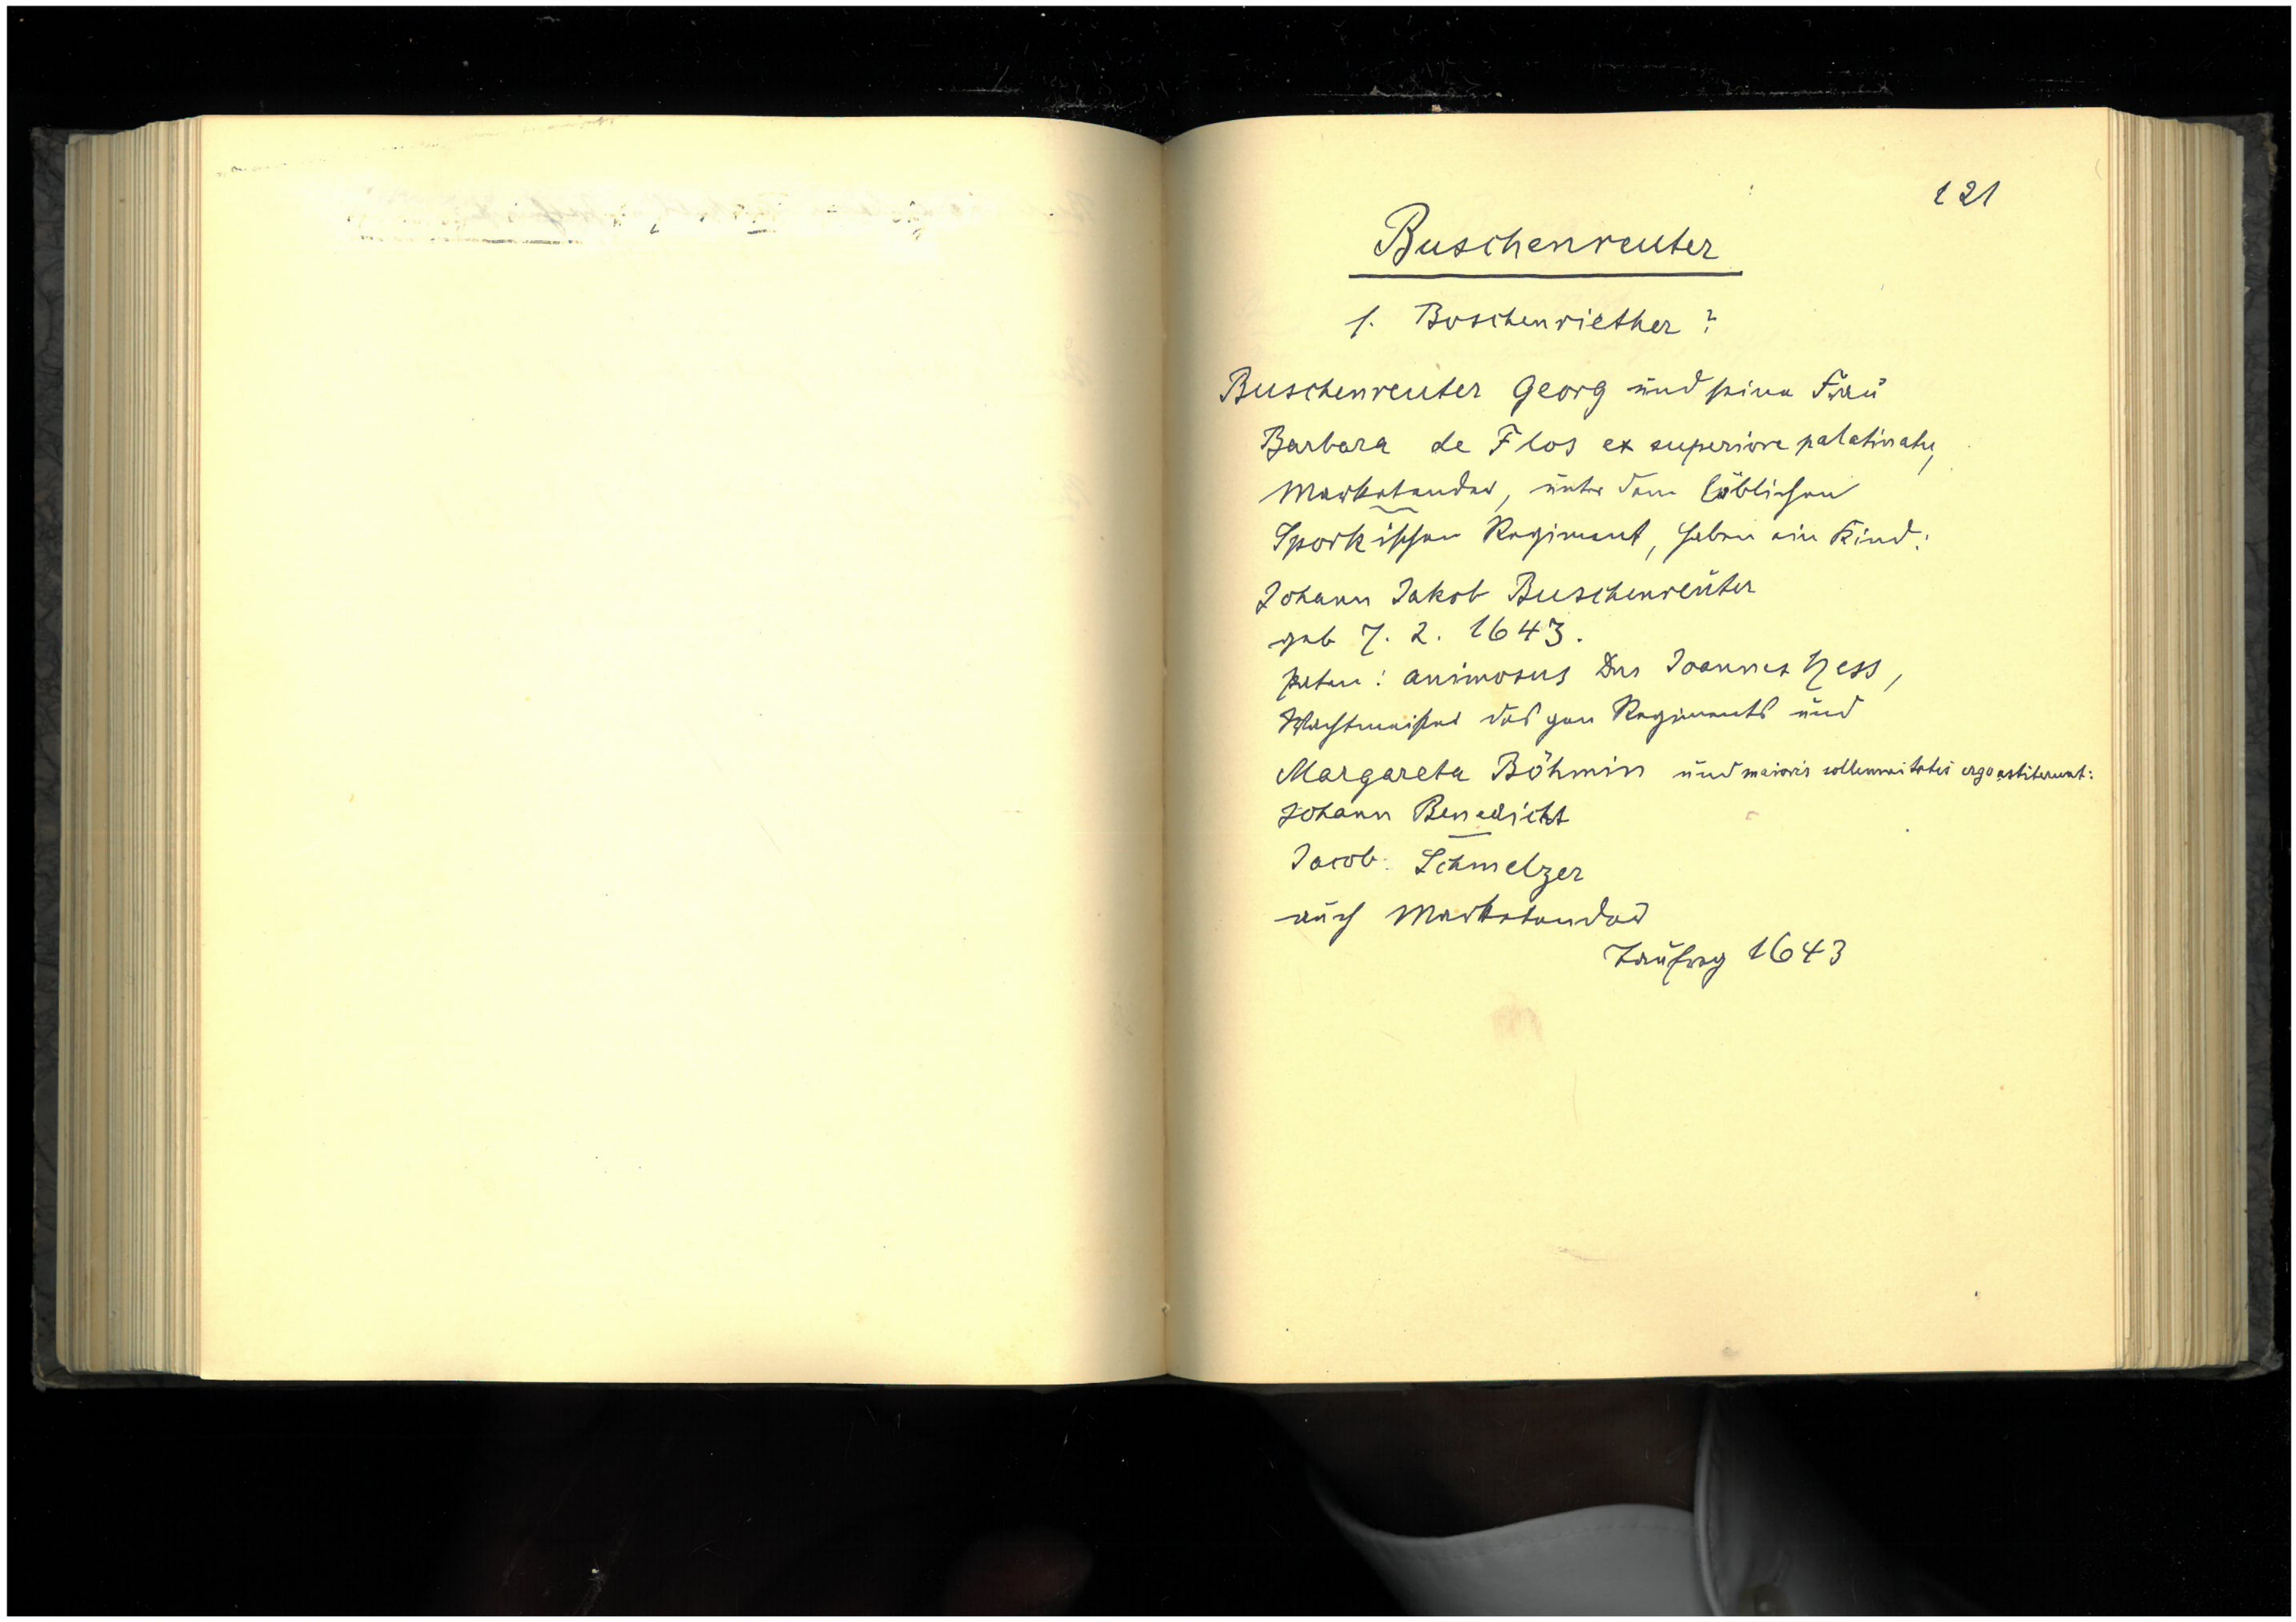 121
Buschenreuter
s. Boschenriether?
Buschenreuter Georg und seine Frau
Barbara de Flos ex superiore palatinatu,
Marketender, unter dem löblichen
Sporkischen Regiment, haben ein Kind:
Johann Jakob Buschenreuter
geb 7. 2. 1643.
Paten: animosus Dns Joannes Hess,
Wachtmeister des gen Regiments und
Margareta Böhmin und maioris sollemnitatis ergo astiterunt:
Johann Benedicht
Jacob Schmelzer
auch Marketender
Taufreg 1643